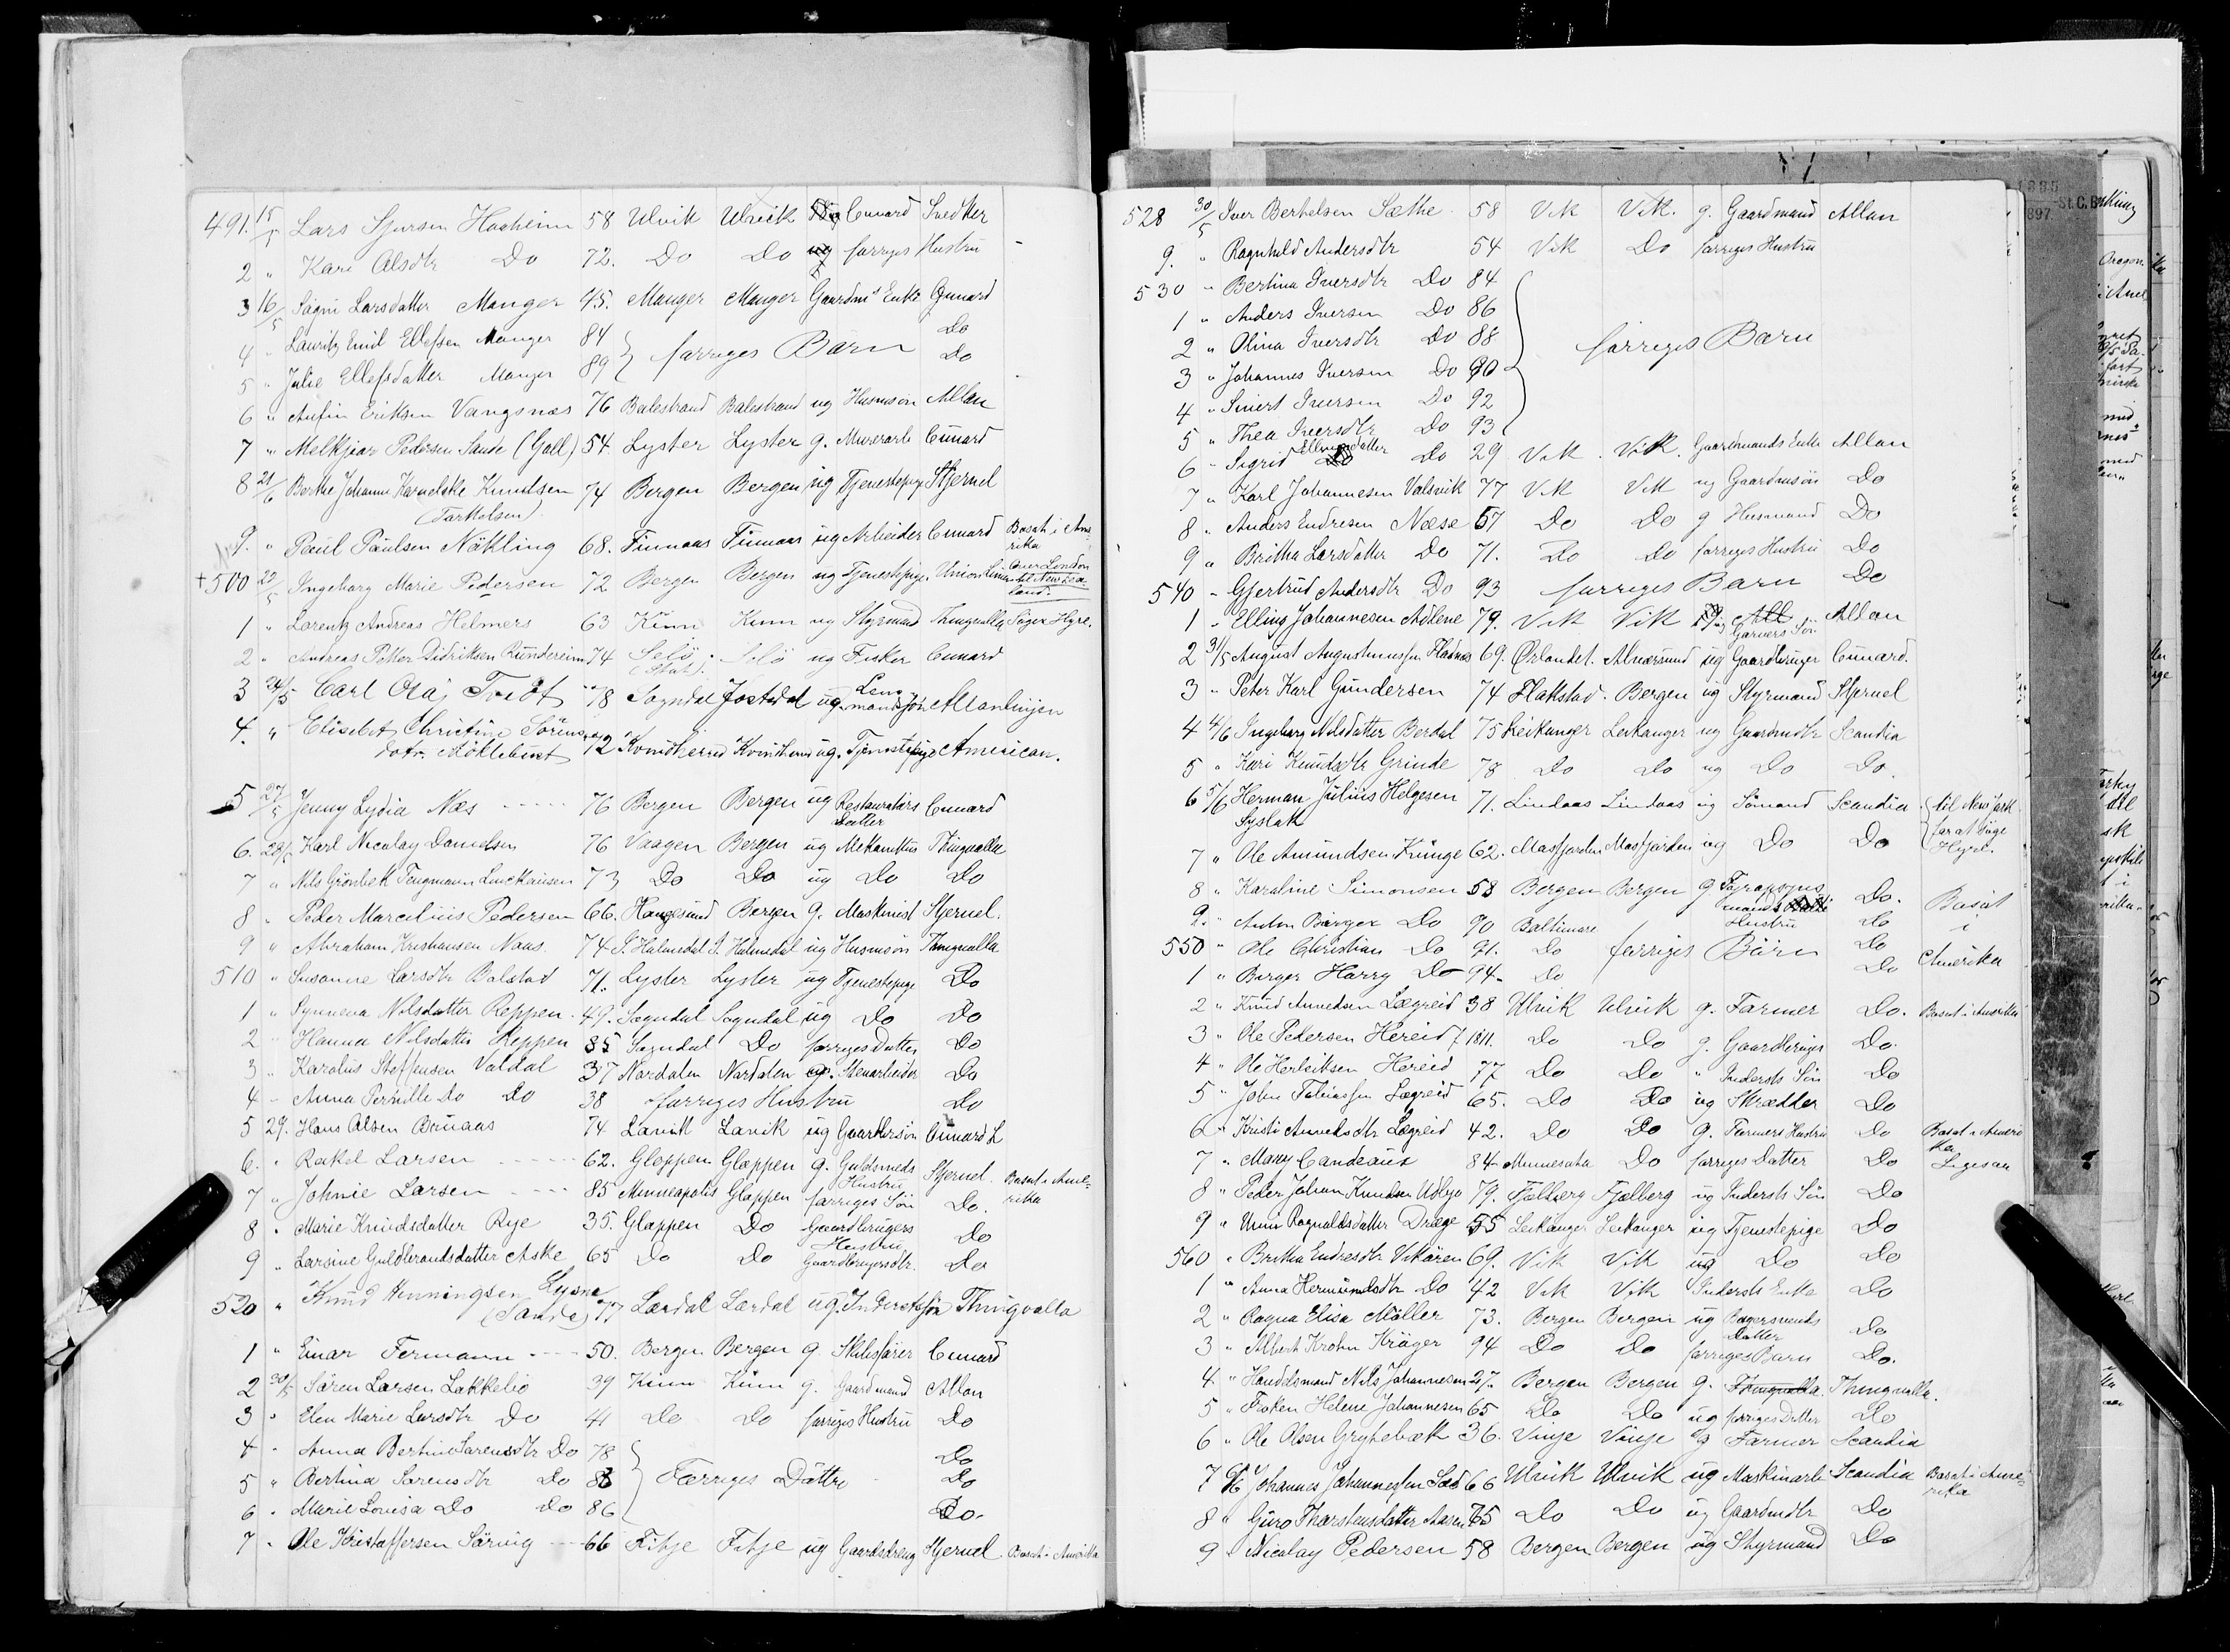 491. 15/5 Lars Sjursen Haaheim 58 Ulvik Ulvik Cunard Snedker
2 " Kari Olsdtr Do 72. Do Do ug farriges Hustru
3 16/5 Sagni Larsdatter Manger 45. Manger Manger Gaardms Enke Cunard
4 " Lauritz Emil Ellefsen Manger 84 Do
5 " Julie Ellefsdatter Manger 89 } farriges Børn Do
6 " Anfin Eriksen Vangsnæs 76 Balestrand Balestrand ug Husmsøn Allan
7 " Melkjior Pedersen Sande (Gall) 54. Lyster Lyster g. Murerarb Cunard
8 21/6 Berthe Johanne Knudsen 74 Bergen Bergen ug Tjenestepige Stjernel
(Torkelsen)
9. " Paul Paulsen Nökling 68. Finnaas Finnaas ug Arbeider Cunard Bosat i Amerika
+500 23/5 Ingeborg Marie Pedersen 72 Bergen Bergen ug Tjenestepige Union Linien Over London til New Zealand.
1 " Lorentz Andreas Helmers 63 Kinn Kinn ug Styrmand Thingvalla Søger Hyre.
2 " Andreas Petter Didriksen Rundereim 74 Selö Selö ug Fisker Cunard
(Stat).
3 24/5 Carl Olaj Tvedt 78 Sogndal Jostedal ug. Lensmandssön Allanlinjen
4. " Elisabet Christine Sörens
dotr. Möklebust 72 Kvindherred Kvindherred ug. Tjenestepige American.
5 27/5 Jenny Lydia Næs 76 Bergen Bergen ug Restauratørs Datter Cunard
6. 28/5 Karl Nicolay Danielsen 76 Vaagen Bergen ug Mekanikus Thingvalla
7 " Nils Grönbek Tengmann Lmckausen 73 Do Do ug Do Do
8 " Peder Marcelius Pedersen 66. Haugesund Bergen g. Maskinist Stjernel.
9 " Abraham Kristiansen Naas 74 S. Halmedal S. Halmedal ug Husmsøn Thingvalla
510 " Susanne Larsdtr Bolstad 71. Lyster Lyster ug Tjenestepige Do
1 " Synneva Nilsdatter Reppen 49. Sogndal Sogndal ug Do Do
2 " Hanna Nilsdatter Reppen 85 Sogndal Do farriges Datter Do
3 " Karolius Steffensen Valdal 37 Nordalen Nordalen g. Stenarbeider Do
4 " Anna Pernille Do Do 38 farriges Hustru Do
5 29. Hans Olsen Bruaas 74 Lavik Lavik ug Gaardbrsøn Cunard L
6. " Rakel Larsen 62. Gloppen Gloppen g. Guldsmeds Hustru Stjernel. Bosat i Amerika
7 " Johnie Larsen 85 Minneapolis Gloppen farriges Søn Do.
8 " Marie Knudsdatter Rye 35. Gloppen Do Gaardbrugers Hustru Do
9 " Larsine Guldbrandsdatter Aske 65 Do Do Gaardbrugersdtr. Do
520 " Knud Henningsen Lysne
(Sande) 77 Lærdal Lærdal ug. Inderstsøn Thingvalla
1 " Einar Fermann 50. Bergen Bergen g. Skibsfører Cunard
2 30/5 Sören Larsen Løkkebø 39 Kinn Kinn g. Gaardmand Allan
3 " Elen Marie Larsdtr Do 41 Do Do farriges Hustru Do
4 " Anna Bertine Sørensdtr Do 78 Do
5 " Bertina Sørensdtr Do 83 } Forriges Døttre Do
6 " Marie Lovisa Do Do 86 Do.
7 " Ole Kristoffersen Särvig 66 Fitje Fitje ug Gaardsdreng Stjernel Bosat i Amerika
528 30/5 Iver Berthelsen Sæthe 58 Vik Vik. g. Gaardmand Allan
9. " Ragnhild Andersdtr 54 Vik Do farriges Hustru
530 " Bertina Iversdtr Do 84
1 " Anders Iversen Do 86
2 " Olina Iversdtr Do 88
3 " Johannes Iversen Do 90 } farriges Børn
4 " Sivert Iversen Do 92
5 " Thea Iversdtr Do 93
6 " Sigrid Ellingsdatter Do 29 Vik Vik. Gaardmands Enke Allan
7 " Karl Johannesen Valsvik 77 Vik Vik ug Gaardmsøn Do
8 " Anders Endresen Næse 57 Do Do g Husmand Do
9 " Britha Larsdatter Do 71. Do Do farriges Hustru Do
540 " Gjertrud Andersdtr Do 93 farriges Barn Do
1 " Elling Johannesen Adlene 79. Vik Vik ug Garvers Søn Allan
2 31/5 August Augustinussen Fladnes 69. Ørlandet. Alversund ug Gaardbruger Cunard.
3 " Peter Karl Gundersen 74 Flakstad. Bergen ug Styrmand Stjernel
4 4/6 Ingeborg Nilsdatter Berdal 75 Leikanger Leikanger ug Gaardmdtr Scandia
5 " Kari Knudsdtr Grinde 78 Do Do ug Do Do.
6 5/6 Herman Julius Helgesen
Syslak 71. Lindaas Lindaas ug Sømand Scandia { til New York
7 " Ole Amundsen Kringe 62. Masfjorden Masfjorden ug Do Do for at søge Hyre.
8 " Karoline Simonsen 58 Bergen Bergen g mands Hustru Do. Bosat
9. " Anton Birger Do 90 Baltimore Do i
550 " Ole Christian Do 91. Do farriges Børn Do Amerika
1 " Birger Harry Do 94. Do Do
2 " Knud Amundsen Lægreid 38 Ulvik Ulvik g. Farmer Do. Bosat i Amerika
3 " Ole Pedersen Hereid f 1811. Do Do g. Gaardbruger Do.
4 " Ole Herleiksen Hereid 77 Do Do " Indersts Søn Do
5 " John Tobiassen Lægreid 65. Do Do ug Skrædder Do
6 " Kristi Amundsdtr Lægreid 42. Do Do g. Farmers Hustru Do Bosat i Amerika
7 " Mary Candeaux 84 Minnesota Do farriges Datter Do Ligesaa
8 " Peder Johan Knudsen Utbjo 79. Fjælberg Fjælberg ug Indersts Søn Do
9 " Unni Ragnaldsdatter Dræge 55 Leikanger Leikanger ug Tjenestepige Do
560 " Britha Endresdtr Vikøren 69. Vik Vik ug Do Do
1 " Anna Hermundsdtr Do 42 Vik Vik Indersts Enke Do
2 " Ragna Elisa Møller 73. Bergen Bergen ug Bagersvends Datter Do
3 " Albert Krohn Krüger 94 Do Do farriges Barn Do.
4 " Handelsmand Nils Johannesen 27. Bergen Bergen g. Thingvalla Thingvalla.
5 " Frøken Helene Johannesen 65 Do Do ug farriges Datter Do
6 " Ole Olsen Grythebæk 36. Vinje Vinje g Farmer Scandia
7 6/6 Johannes Johannessen Sæd 66 Ulvik Ulvik ug Maskinarb Scandia Bosat i Amerika
8 " Guro Thorstensdatter Aasen 75 Do Do ug Gaardmdtr Do
9 " Nicolay Pedersen 58 Bergen Bergen ug Styrmand Do